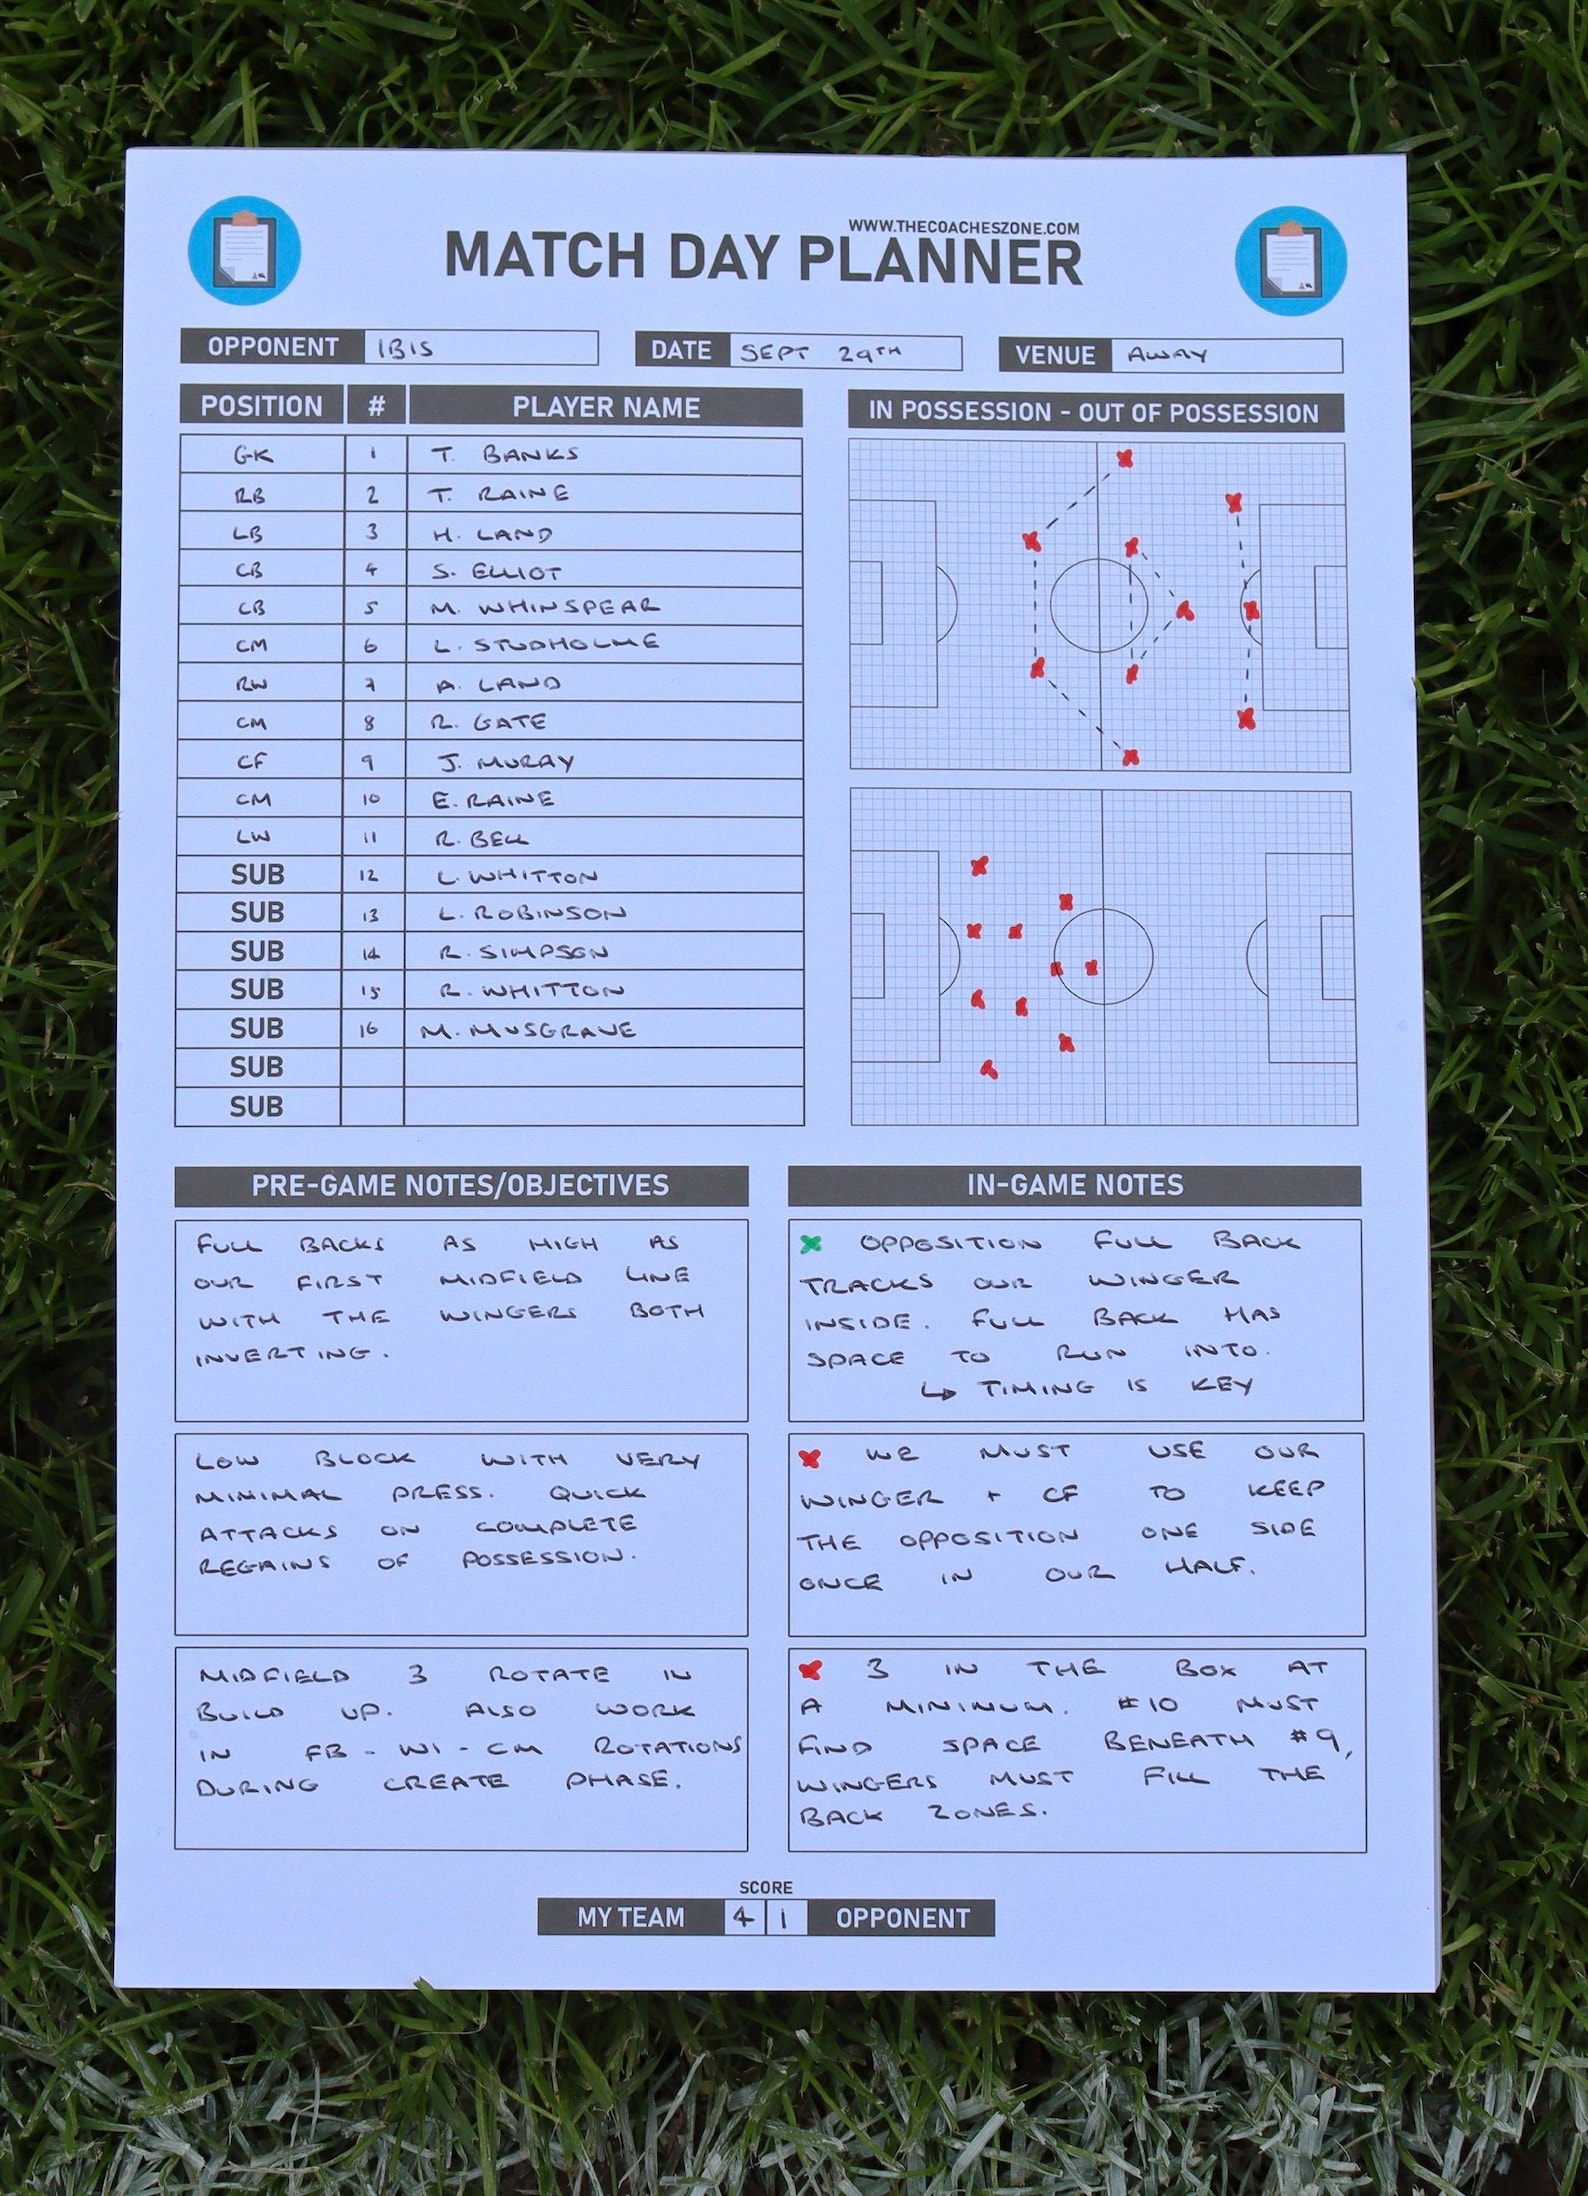 WWW.THECOACHESZONE.COM
MATCH DAY PLANNER
OPPONENT IBIS
DATE SEPT 29TH
VENUE AWAY
POSITION # PLAYER NAME
GK 1 T. BANKS
RB 2 T. RAINE
LB 3 H. LAND
CB 4 S. ELLIOT
CB 5 M. WHINSPEAR
CM 6 L. STUDHOLME
RW 7 A. LAND
CM 8 R. GATE
CF 9 J. MURAY
CM 10 E. RAINE
LW 11 R. BELL
SUB 12 L. WHITTON
SUB 13 L. ROBINSON
SUB 14 R. SIMPSON
SUB 15 R. WHITTON
SUB 16 M. MUSGRAVE
SUB
SUB
IN POSSESSION - OUT OF POSSESSION
PRE-GAME NOTES/OBJECTIVES
FULL BACKS AS HIGH AS
OUR FIRST MIDFIELD LINE
WITH THE WINGERS BOTH
INVERTING.
LOW BLOCK WITH VERY
MINIMAL PRESS. QUICK
ATTACKS ON COMPLETE
REGAINS OF POSSESSION.
MIDFIELD 3 ROTATE IN
BUILD UP. ALSO WORK
IN FB - WI - CM ROTATIONS
DURING CREATE PHASE.
IN-GAME NOTES
OPPOSITION FULL BACK
TRACKS OUR WINGER
INSIDE. FULL BACK HAS
SPACE TO RUN INTO.
↳ TIMING IS KEY
WE MUST USE OUR
WINGER + CF TO KEEP
THE OPPOSITION ONE SIDE
ONCE IN OUR HALF.
3 IN THE BOX AT
A MINIMUM. #10 MUST
FIND SPACE BENEATH #9,
WINGERS MUST FILL THE
BACK ZONES.
SCORE
MY TEAM 4 1 OPPONENT